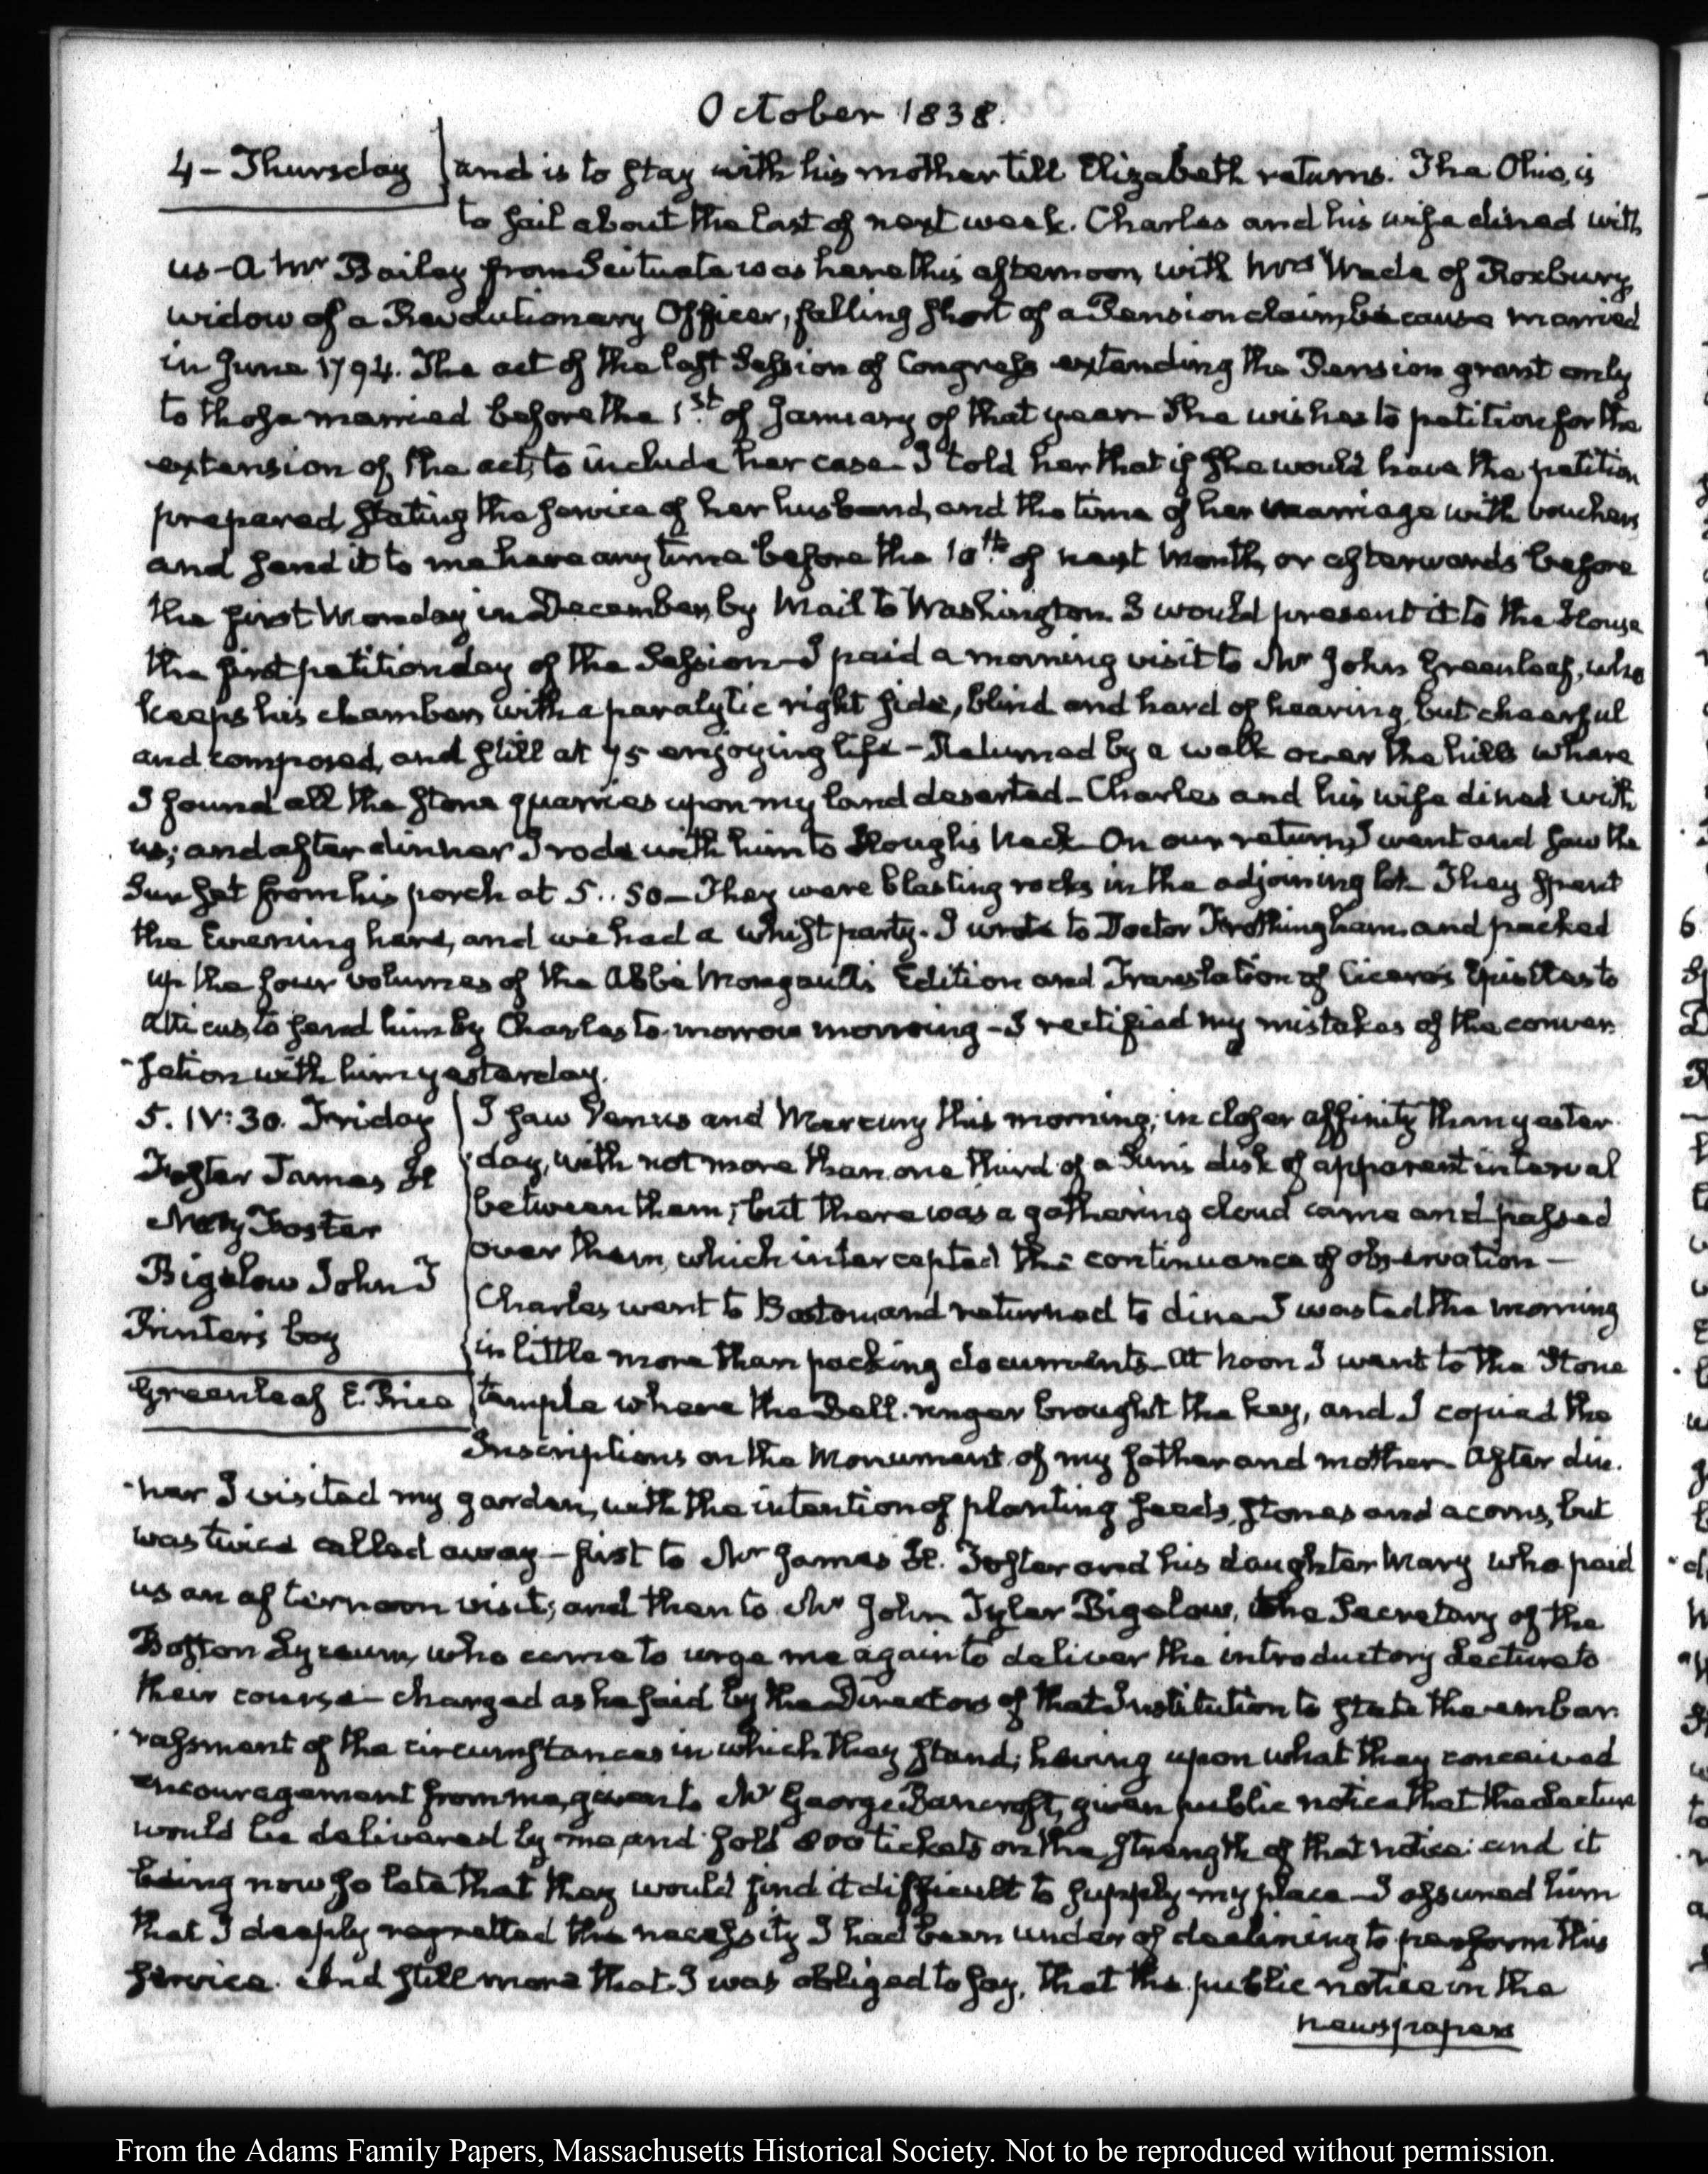 October 1838.
4 - Thursday
and is to stay with his mother till Elizabeth returns. The Ohio, is
to sail about the last of next week. Charles and his wife dined with
us - A Mr Bailey from Scituate was here this afternoon, with Mrs Wade of Roxbury,
widow of a Revolutionary Officer, falling short of a Pension claim, because married
in June 1794. The act of the last Session of Congress extending the Pension grant only
to those married before the 1st of January of that year. She wishes to petition for the
extension of the act, to include her case - I told her that if she would have the petition
prepared stating the service of her husband, and the time of her marriage with vouchers
and send it to me here any time before the 10th of next Month, or afterwards before
the first Monday in December, by Mail to Washington I would present it to the House
the first petition day of the Session - I paid a morning visit to Mr John Greenleaf, who
keeps his chamber, with a paralytic right side, blind and hard of hearing, but chearful
and composed, and still at 75 enjoying life - Returned by a walk over the hills where
I found all the stone quarries upon my land deserted - Charles and his wife dined with
us; and after dinner I rode with him to Hough's Neck - On our return, I went and saw the
Sun set from his porch at 5..50 - They were blasting rocks in the adjoining lot. They spent
the Evening here, and we had a whist party. I wrote to Doctor Frothingham, and packed
up the four volumes of the Abbé Mongault's Edition and Translation of Cicero's Epistles to
Atticus, to send him by Charles to-morrow morning - I rectified my mistakes of the conver-
-sation with him yesterday.
5. IV:30. Friday
Foster James H
Mary Foster
Bigelow John T
Printer's boy
Greenleaf E. Price
I saw Venus and Mercury this morning; in closer affinity than yester-
day, with not more than one third of a Sun's disk of apparent interval
between them; but there was a gathering cloud came and passed
over them, which intercepted the continuance of observation -
Charles went to Boston, and returned to dine - I wasted the morning
in little more than packing documents - At Noon I went to the Stone
temple where the Bell-ringer brought the key, and I copied the
Inscriptions on the Monument of my father and mother - After din-
-ner I visited my garden, with the intention of planting seeds, stones and acorns, but
was twice called away - first to Mr James H. Foster and his daughter Mary who paid
us an afternoon visit; and then to Mr John Tyler Bigelow, the Secretary of the
Boston Lyceum, who came to urge me again to deliver the introductory Lecture to
their course - charged as he said by the Directors of that Institution to state the embar-
-rassment of the circumstances in which they stand; having upon what they conceived
encouragement from me, given to Mr George Bancroft, given public notice that the Lecture
would be delivered by me, and sold 800 tickets on the strength of that notice: and it
being now so late that they would find it difficult to supply my place - I assured him
that I deeply regretted the necessity I had been under of declining to perform this
service. And still more that I was obliged to say, that the public notice in the
newspapers
From the Adams Family Papers, Massachusetts Historical Society. Not to be reproduced without permission.